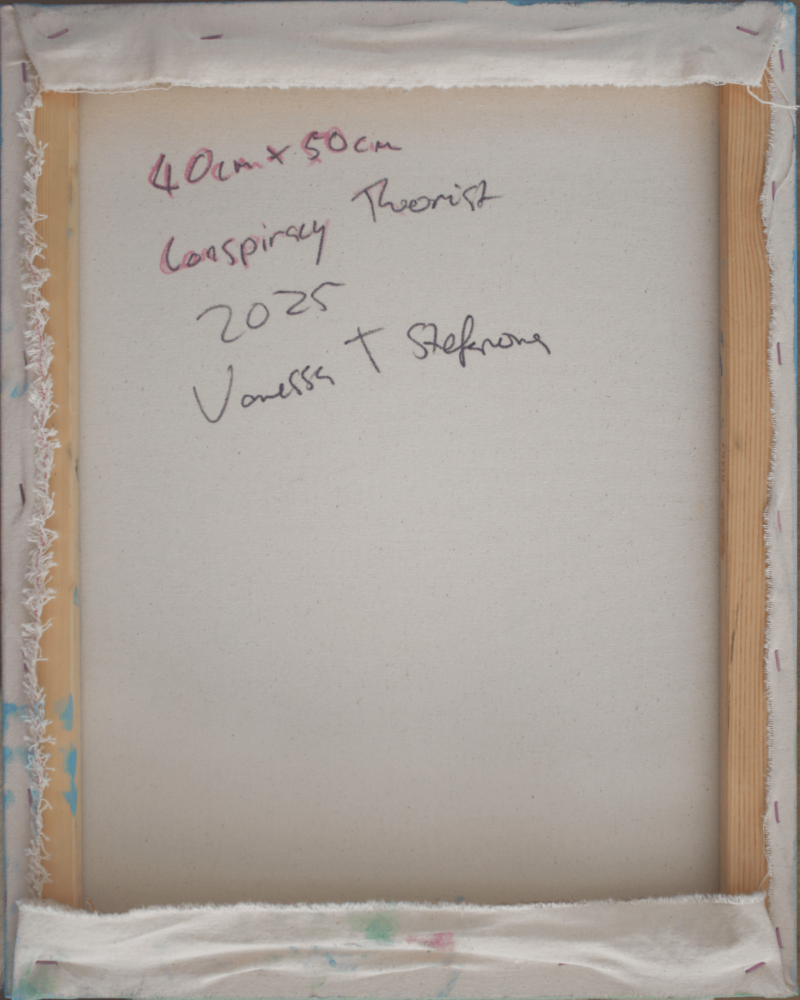 40cm x 50cm
Conspiracy Theorist
2025
Vanessa T